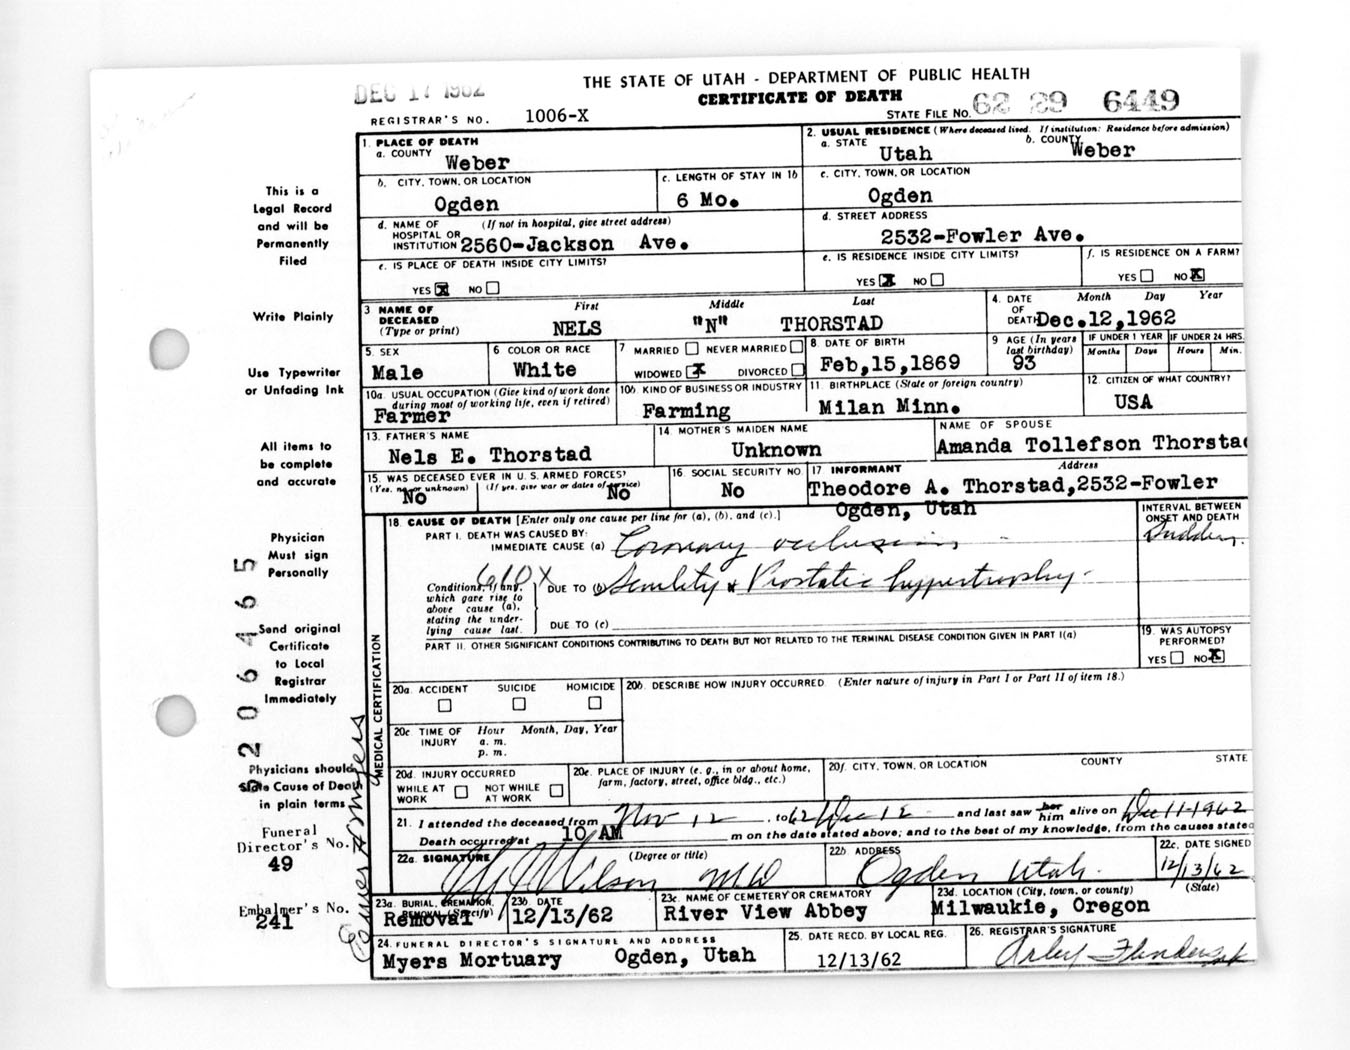 THE STATE OF UTAH - DEPARTMENT OF PUBLIC HEALTH
CERTIFICATE OF DEATH
DEC 17 1962
REGISTRAR'S NO. 1006-X
STATE FILE NO. 62 29 6449
1. PLACE OF DEATH
a. COUNTY Weber
2. USUAL RESIDENCE (Where deceased lived. If institution: Residence before admission)
a. STATE Utah b. COUNTY Weber
b. CITY, TOWN, OR LOCATION Ogden
c. LENGTH OF STAY IN 1b 6 Mo.
c. CITY, TOWN, OR LOCATION Ogden
d. NAME OF HOSPITAL OR INSTITUTION (If not in hospital, give street address) 2560-Jackson Ave.
d. STREET ADDRESS 2532-Fowler Ave.
e. IS PLACE OF DEATH INSIDE CITY LIMITS?
YES X NO
e. IS RESIDENCE INSIDE CITY LIMITS?
YES X NO
f. IS RESIDENCE ON A FARM?
YES NO X
3 NAME OF DECEASED (Type or print)
First Middle Last
NELS "N" THORSTAD
4. DATE OF DEATH Month Day Year
Dec.12,1962
5. SEX Male
6 COLOR OR RACE White
7 MARRIED NEVER MARRIED
WIDOWED X DIVORCED
8. DATE OF BIRTH Feb,15,1869
9 AGE (In years last birthday) 93
IF UNDER 1 YEAR Months Days
IF UNDER 24 HRS. Hours Min.
10a. USUAL OCCUPATION (Give kind of work done during most of working life, even if retired) Farmer
10b. KIND OF BUSINESS OR INDUSTRY Farming
11. BIRTHPLACE (State or foreign country) Milan Minn.
12. CITIZEN OF WHAT COUNTRY? USA
13. FATHER'S NAME Nels E. Thorstad
14. MOTHER'S MAIDEN NAME Unknown
NAME OF SPOUSE Amanda Tollefson Thorstad
15. WAS DECEASED EVER IN U. S. ARMED FORCES?
(Yes, no, or unknown) No (If yes, give war or dates of service) No
16. SOCIAL SECURITY NO. No
17 INFORMANT Address
Theodore A. Thorstad,2532-Fowler
Ogden, Utah
18. CAUSE OF DEATH [Enter only one cause per line for (a), (b), and (c).]
INTERVAL BETWEEN ONSET AND DEATH
PART I. DEATH WAS CAUSED BY:
IMMEDIATE CAUSE (a) Coronary occlusion Sudden
Conditions, if any, which gave rise to above cause (a), stating the underlying cause last.
610X
DUE TO (b) Senility & Prostatic hypertrophy
DUE TO (c)
PART II. OTHER SIGNIFICANT CONDITIONS CONTRIBUTING TO DEATH BUT NOT RELATED TO THE TERMINAL DISEASE CONDITION GIVEN IN PART I(a)
19. WAS AUTOPSY PERFORMED?
YES NO X
20a. ACCIDENT SUICIDE HOMICIDE
20b. DESCRIBE HOW INJURY OCCURRED. (Enter nature of injury in Part I or Part II of item 18.)
20c TIME OF INJURY Hour Month, Day, Year
a. m.
p. m.
20d. INJURY OCCURRED
WHILE AT WORK NOT WHILE AT WORK
20e. PLACE OF INJURY (e. g., in or about home, farm, factory, street, office bldg., etc.)
20f. CITY, TOWN, OR LOCATION COUNTY STATE
21. I attended the deceased from Nov 12, to 62 Dec 12 and last saw her him alive on Dec 11-1962
Death occurred at 10 AM m on the date stated above; and to the best of my knowledge, from the causes stated
22a. SIGNATURE (Degree or title) Wilson MD
22b. ADDRESS Ogden Utah
22c. DATE SIGNED 12/13/62
23a. BURIAL, CREMATION, REMOVAL (Specify) Removal
23b. DATE 12/13/62
23c. NAME OF CEMETERY OR CREMATORY River View Abbey
23d. LOCATION (City, town, or county) (State) Milwaukie, Oregon
24. FUNERAL DIRECTOR'S SIGNATURE AND ADDRESS
Myers Mortuary Ogden, Utah
25. DATE RECD. BY LOCAL REG. 12/13/62
26. REGISTRAR'S SIGNATURE
MEDICAL CERTIFICATION
This is a
Legal Record
and will be
Permanently
Filed
Write Plainly
Use Typewriter
or Unfading Ink
All items to
be complete
and accurate
Physician
Must sign
Personally
Send original
Certificate
to Local
Registrar
Immediately
Physicians should
State Cause of Death
in plain terms
Funeral
Director's No.
49
Embalmer's No.
241
5206465